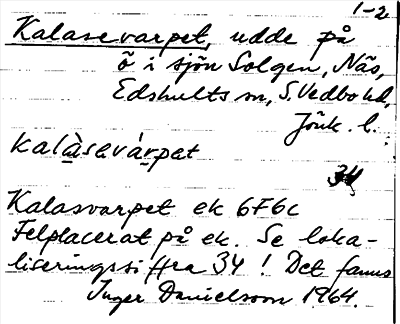 1-2
Kalasevarpet, udde på
ö i sjön Solgen, Näs,
Edshults sn, S. Vedbo hd,
Jönk. l.
kalàsevárpet
34
Kalasvarpet ek 6F6c
Felplacerat på ek. Se loka-
liseringssiffra 34! Det fanns
Inger Danielsson 1964.